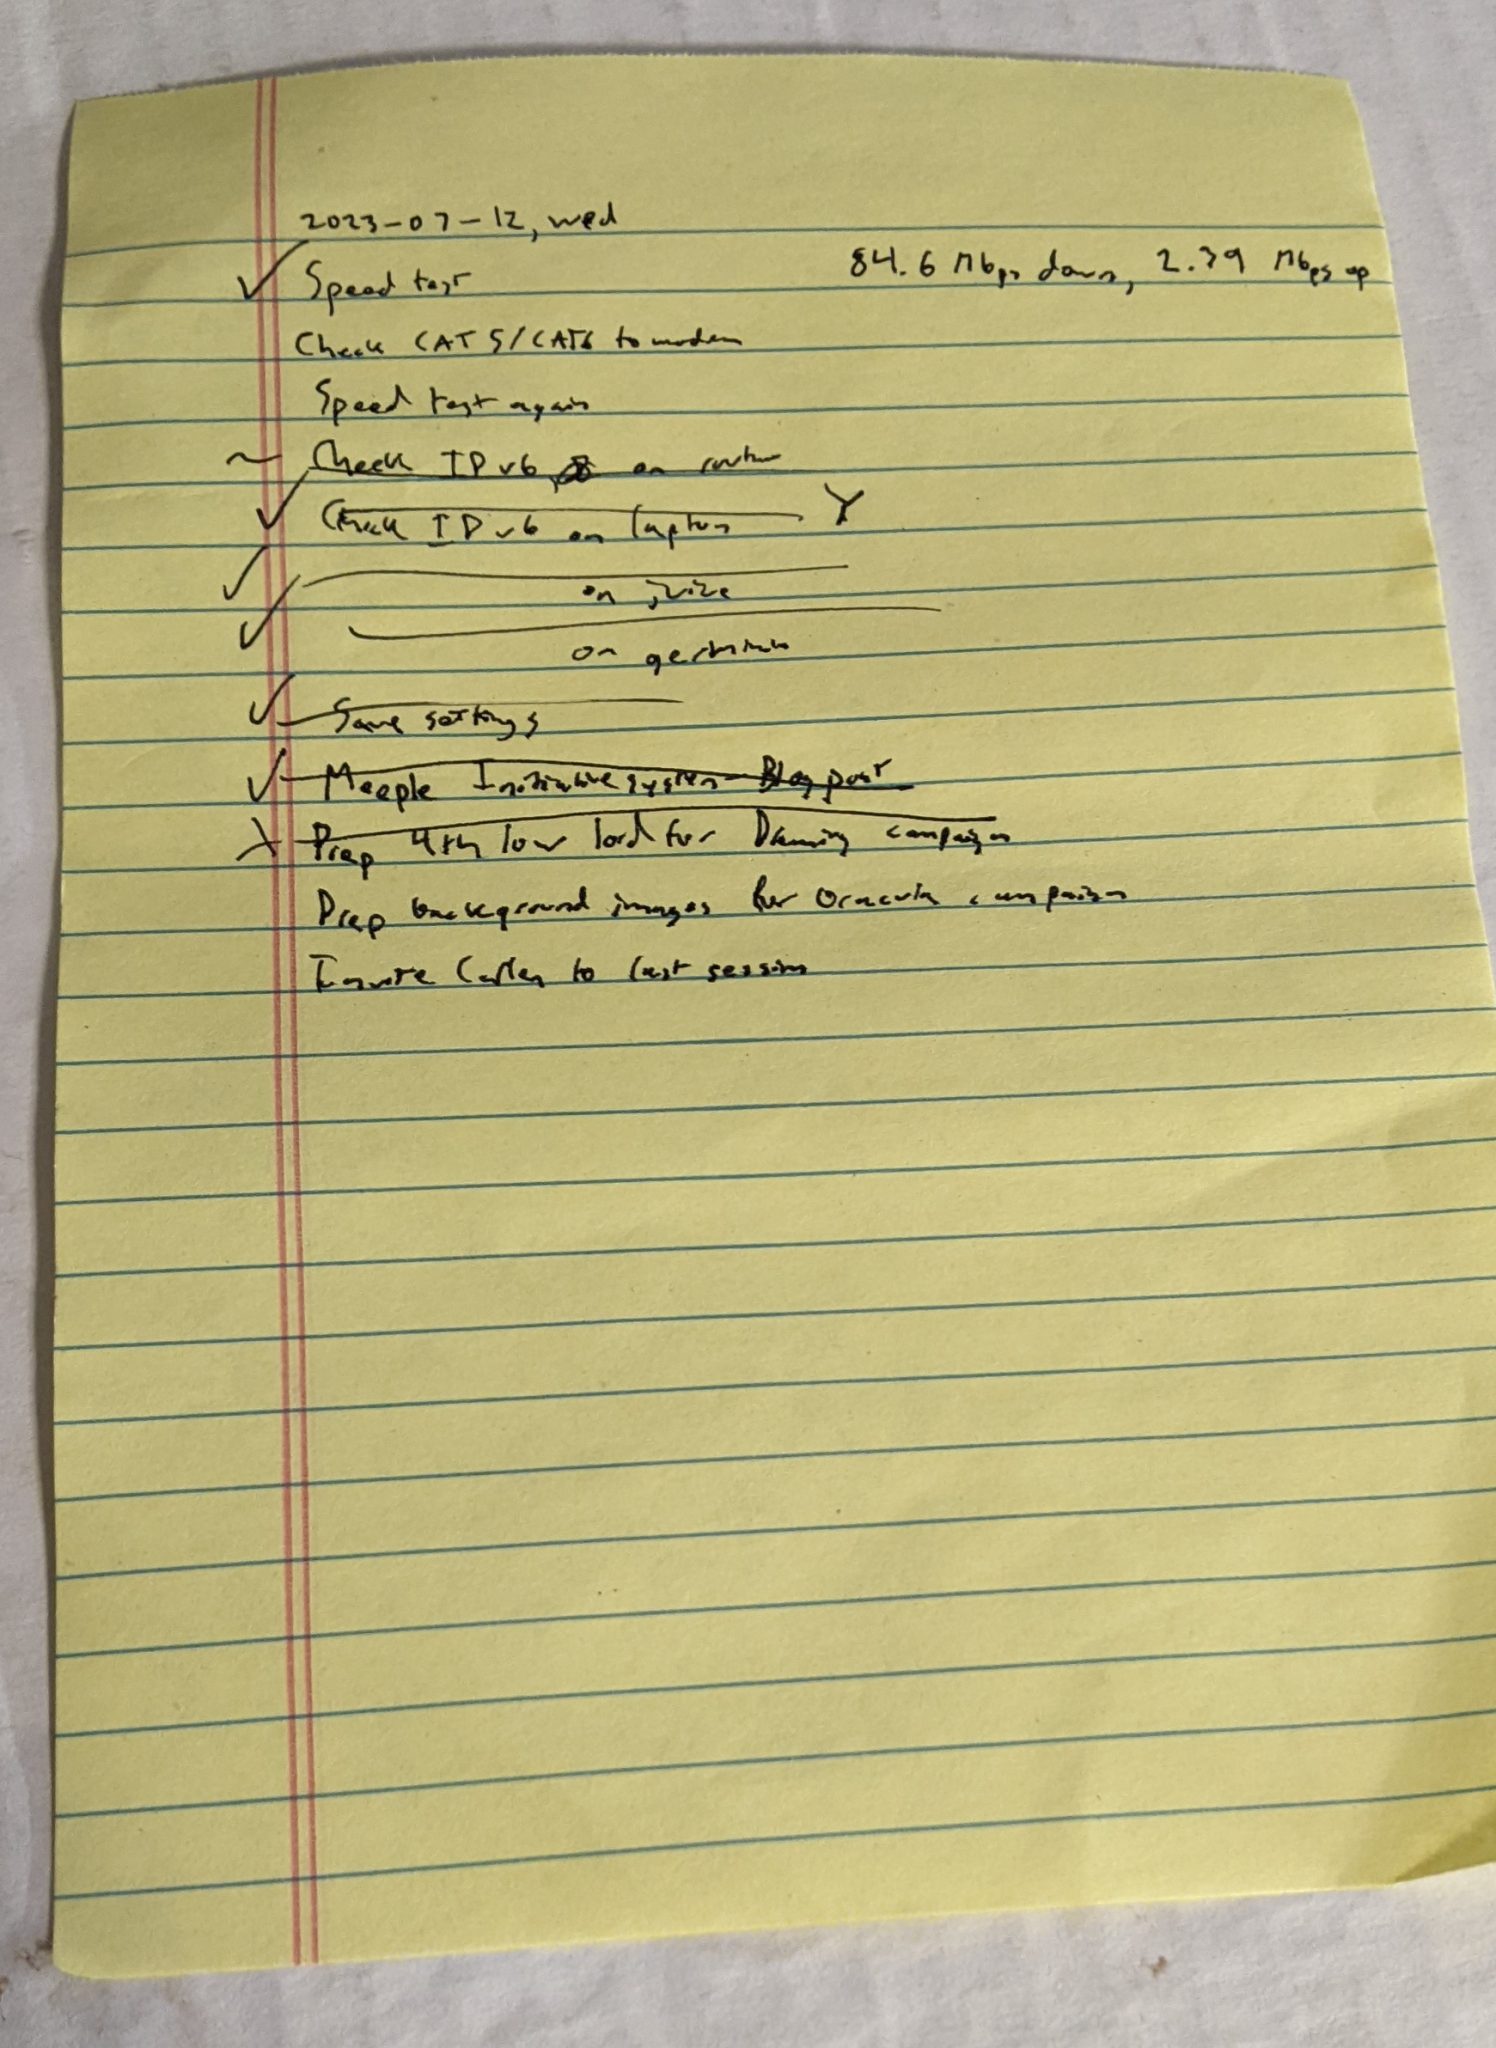 2023-07-12, wed
✓ Speed test 84.6 Mbps down, 2.39 Mbps up
Check CAT5/CAT6 to modem
Speed test again
~ Check IPv6 on router
✓ Check IPv6 on laptop Y
✓ on juice
✓ on
✓ Save settings
✓ Meeple Initiative system Blog post
Prep 4th low lord for campaign
Prep background images for Oracula campaign
Invite to last session